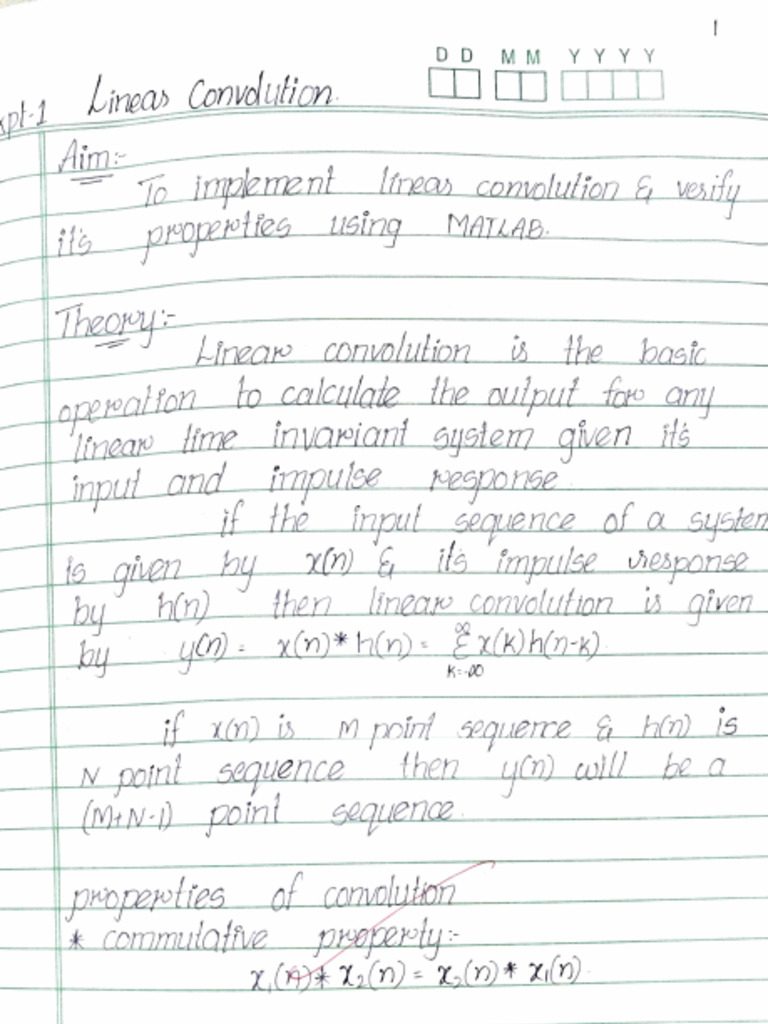 1
DD MM YYYY
xpt-1 Linear Convolution.
Aim:-
To implement linear convolution & verify
it's properties using MATLAB.
Theory:-
Linear convolution is the basic
operation to calculate the output for any
linear time invariant system given it's
input and impulse response
if the input sequence of a system
is given by x(n) & it's impulse response
by h(n) then linear convolution is given
by y(n) = x(n) * h(n) = ∞Σk=-∞ x(k)h(n-k)
if x(n) is M point sequence & h(n) is
N point sequence then y(n) will be a
(M+N-1) point sequence.
properties of convolution
* commutative property:-
x₁(n) * x₂(n) = x₂(n) * x₁(n)